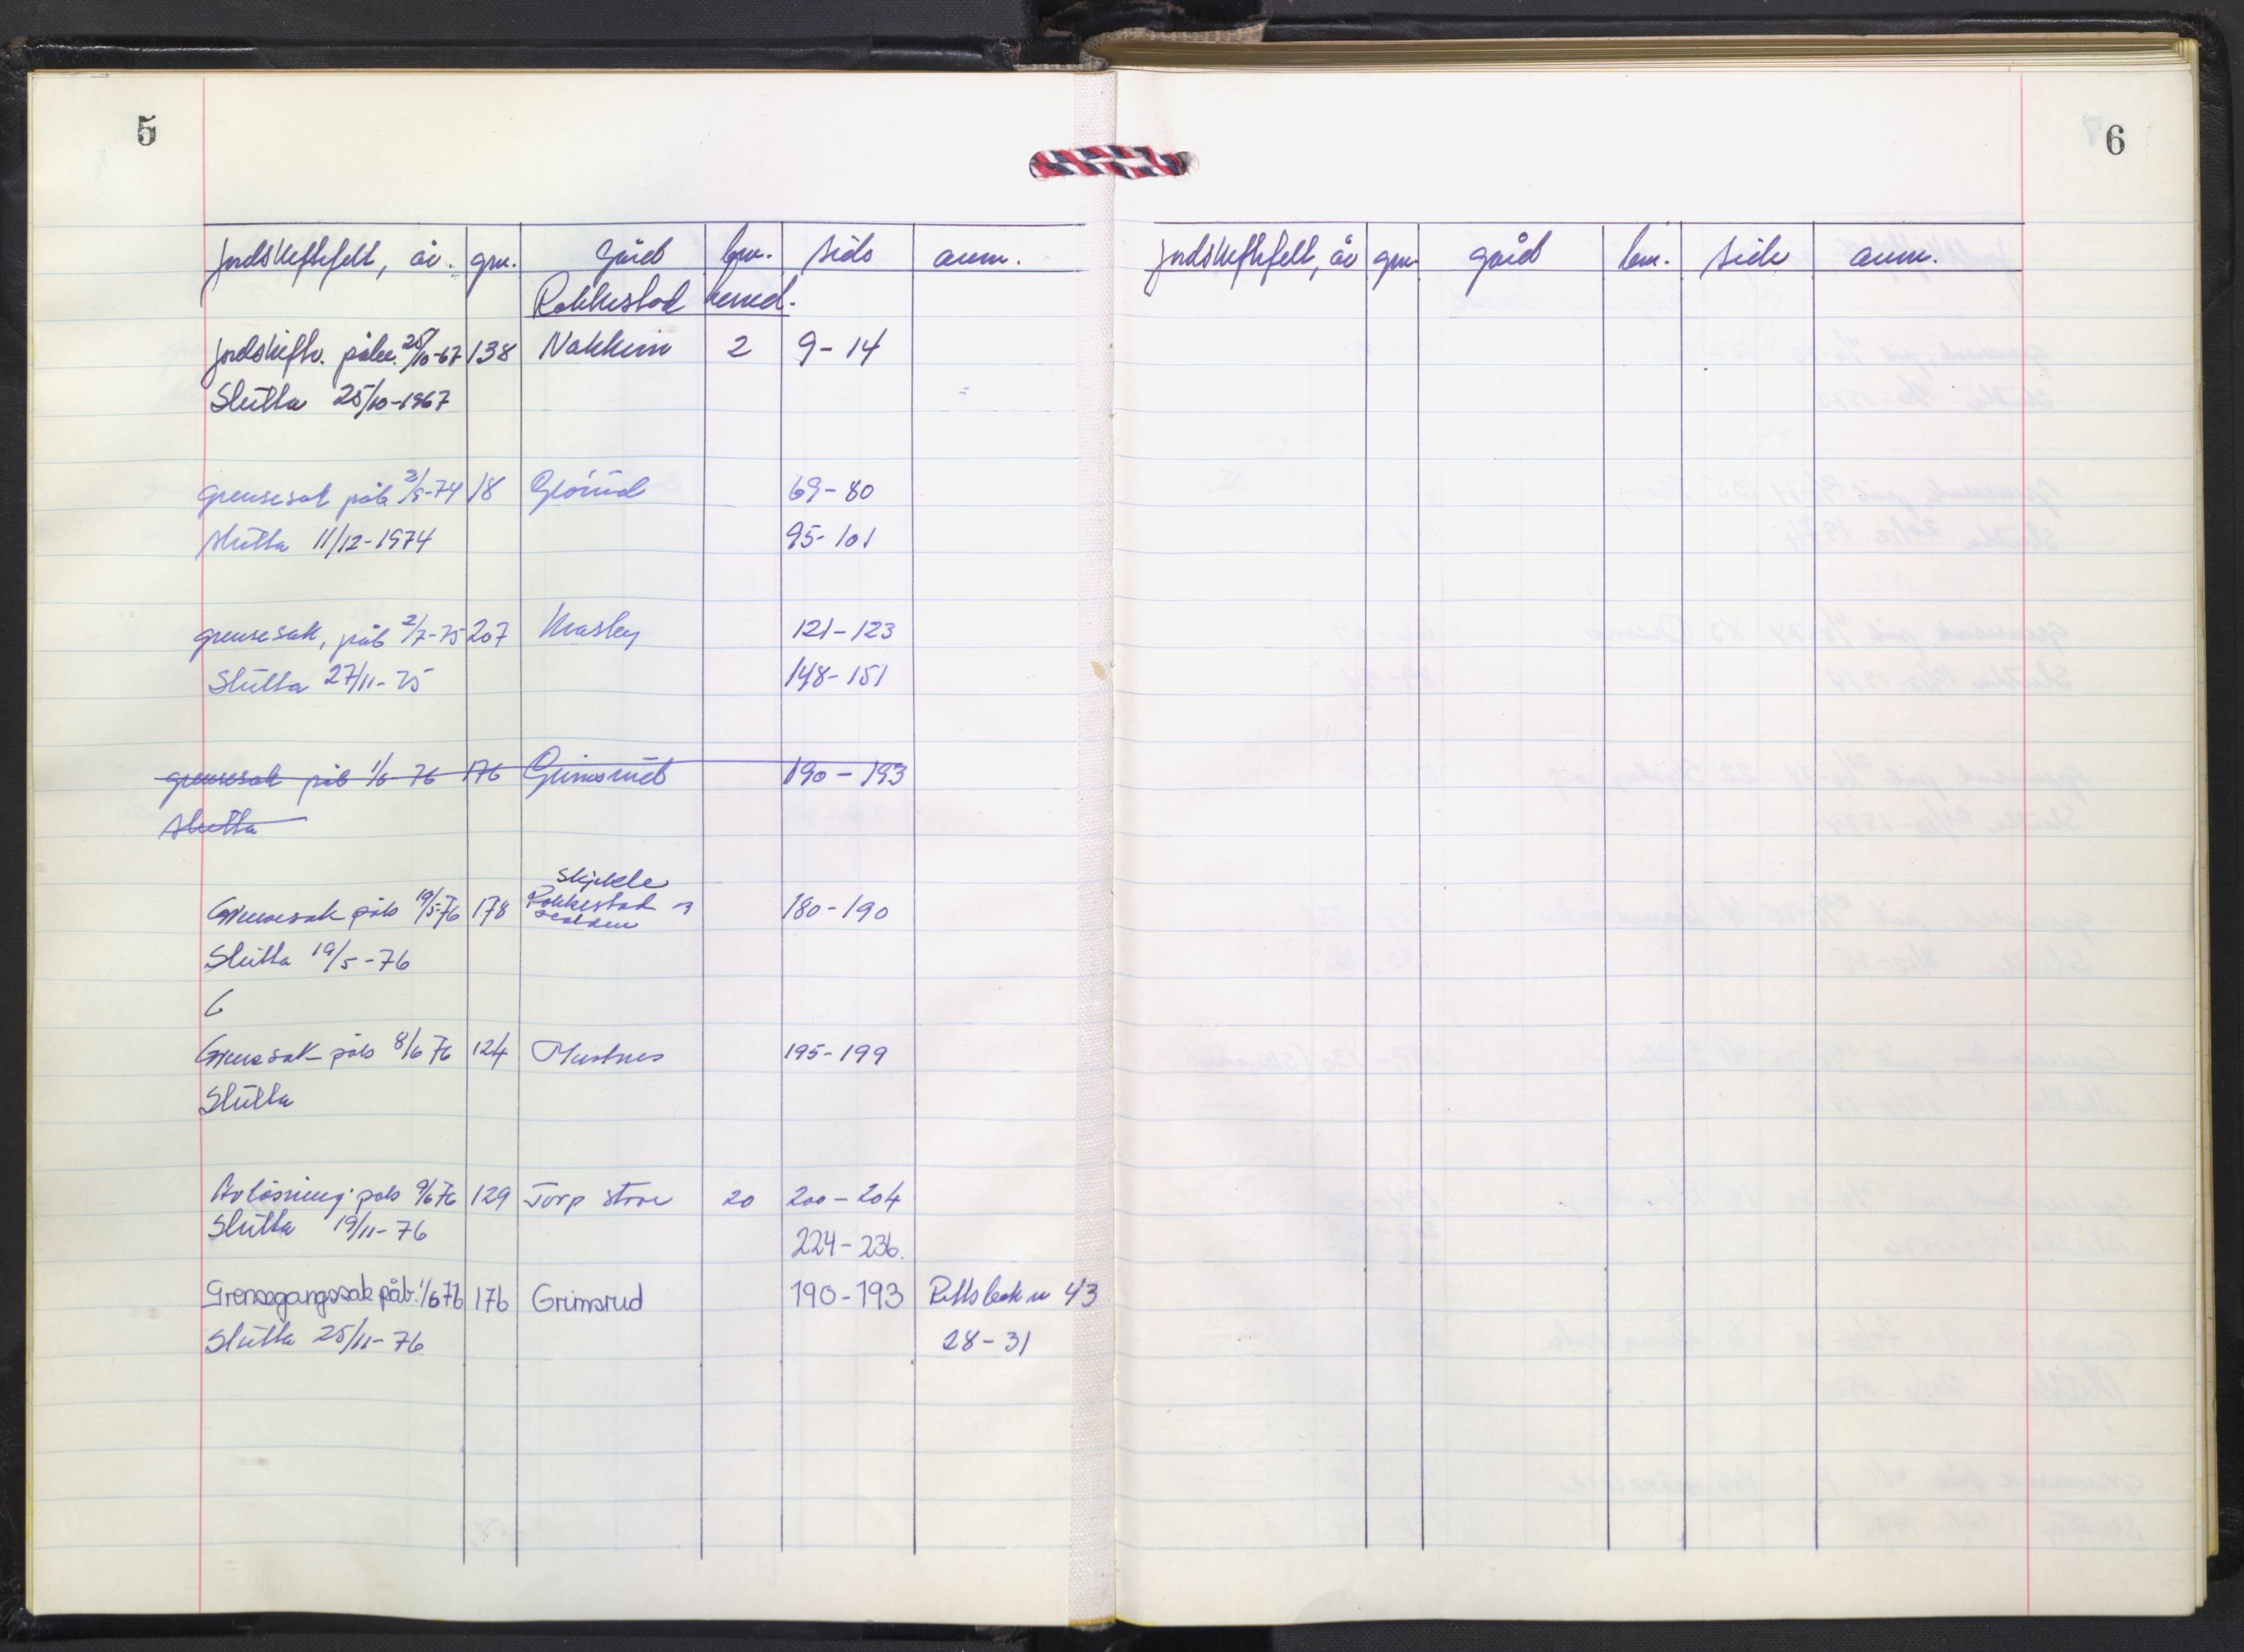 5
Jordskiftefelt, år. gnr. gård bnr. side anm.
Rakkestad herred.
Jordskiftv. påbe. 25/10-67 138 Nakkim 2 9-14
Slutta 25/10-1967
grensesak påb 2/8-74 18 Glørud 69-80
slutta 11/12-1974 95-101
grensesak, påb 2/7-75 207 Krosby 121-123
Slutta 27/11-75 148-151
grensesak påb 1/6 76 176 Grimsrud 190-193
slutta
Skjekle
Grensesak påb 19/5-76 178 Rakkestad 180-190
Slutta 19/5-76
G
Grensesak påb 8/6 76 124 Mustnes 195-199
Slutta
Avløsning påb 9/6 76 129 Torp store 20 200-204
Slutta 19/11-76
224-236.
Grensegangssak påb. 1/6 76 176 Grimsrud 190-193 Rettsbok nr 43
Slutta 25/11-76 28-31
6
Jordskiftefelt, år gnr. gård bnr. side anm.